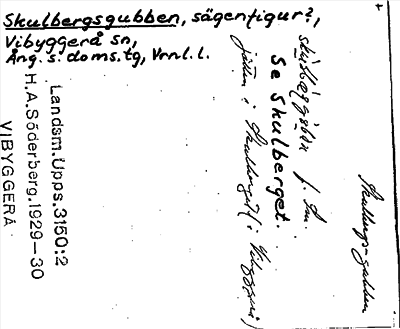 Skulbergsgubben, sägenfigur?,
Vibyggerå sn,
Ång. s. doms.tg, Vrnl. l.
Se Skulberget.
jätten i Skulberget (i Vibyggerå)
Skulbergs-gubben
Landsm. Upps. 3150:2
H.A. Söderberg. 1929-30
VIBYGGERÅ